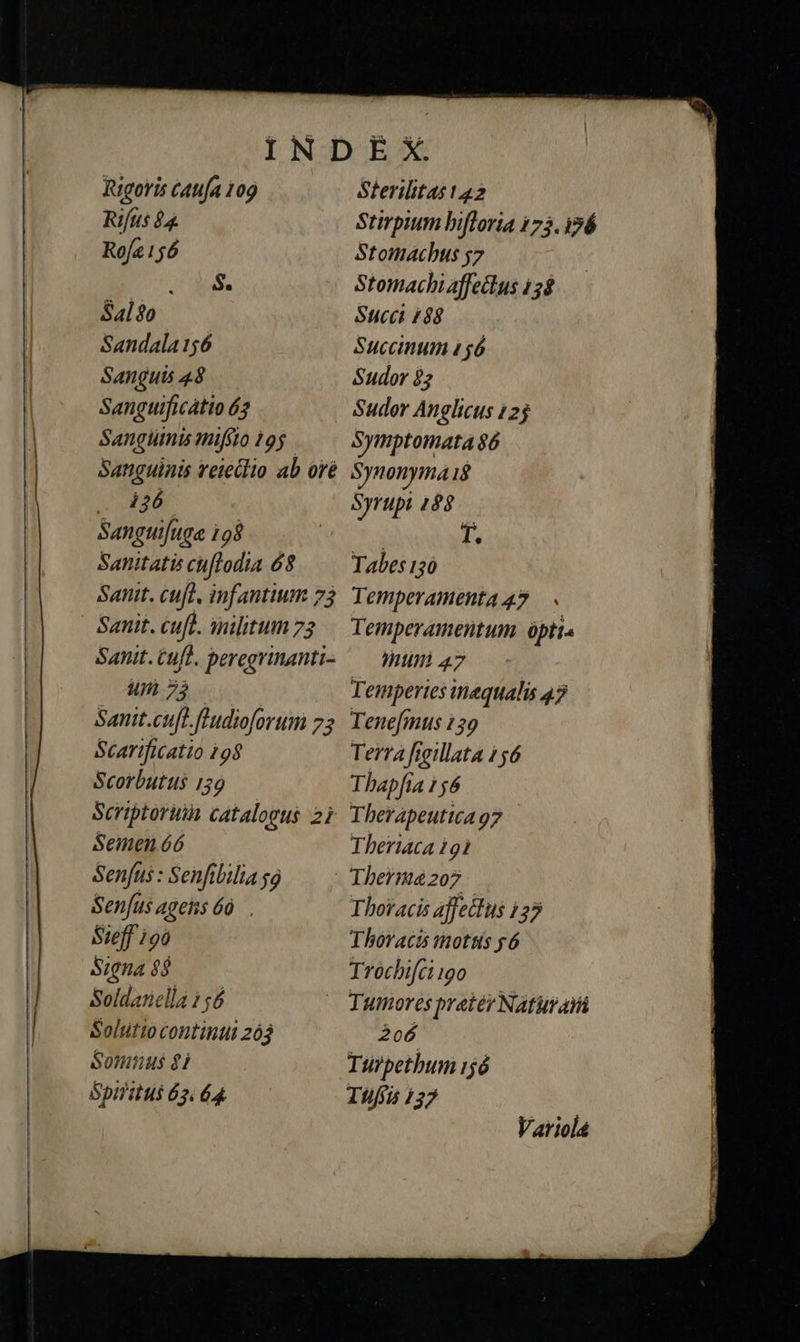 INDEX.
Rigoris cauſa 109
Riſus 84
Roſæ 156
S.
Sal 80
Sandala 156
Sanguis 48
Sanguificatio 63
Sanguinis miſsio 195
Sanguinis reiectio ab ore
136
Sanguiſugæ 198
Sanitatis cuſtodia 68
Sanit. cuſt. infantium 73
Sanit. cuſt. militum 73
Sanit. cuſt. peregrinanti-
um 73
Sanit. cuſt. ſtudioſorum 73
Scarificatio 198
Scorbutus 139
Scriptorum catalogus 21
Semen 66
Senſus: Senſibilia 59
Senſus agens 60
Sieff 190
Signa 88
Soldanella 156
Solutio continui 203
Somnus 81
Spiritus 63. 64
Sterilitas 142
Stirpium hiſtoria 173. 176
Stomachus 57
Stomachi affectus 138
Succi 188
Succinum 156
Sudor 83
Sudor Anglicus 125
Symptomata 86
Synonyma 18
Syrupi 188
T.
Tabes 130
Temperamenta 47
Temperamentum opti-
mum 47
Temperies inæqualis 47
Teneſmus 139
Terra ſigillata 156
Thapſia 156
Therapeutica 97
Theriaca 191
Thermæ 207
Thoracis affectus 137
Thoracis motus 56
Trochiſci 190
Tumores præter Naturam
206
Turpethum 156
Tuſsis 137
Variolæ